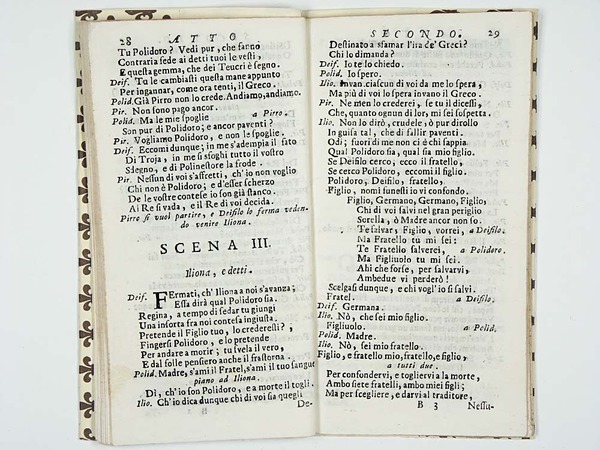 28 ATTO
Tu Polidoro? Vedi pur, che fanno
Contraria fede ai detti tuoi le vesti,
E questa gemma, che dei Teucri è segno.
Deif. Tu le cambiasti questa mane appunto
Per ingannar, come ora tenti, il Greco.
Polid. Già Pirro non lo crede. Andiamo, andiamo.
Pir. Non sono pago ancor.
Polid. Ma le mie spoglie a Pirro.
Son pur di Polidoro; e ancor paventi?
Pir. Vogliamo Polidoro, e non le spoglie.
Deif. Eccomi dunque; in me s'adempia il fato
Di Troja, in me si sfoghi tutto il vostro
Sdegno, e di Polinestore la frode.
Pir. Nessun di voi s'affretti, ch'io non voglio
Chi non è Polidoro; e d'esser scherzo
De le vostre contese io son già stanco.
Al Re si vada, e il Re di voi decida.
Pirro si vuol partire, e Deifilo lo ferma veden-
do venire Iliona.
SCENA III.
Iliona, e detti.
Deif. FErmati, ch'Iliona a noi s'avanza;
Essa dirà qual Polidoro sia.
Regina, a tempo di sedar tu giungi
Una insorta fra noi contesa ingiusta.
Pretende il Figlio tuo, lo crederesti?,
Fingersi Polidoro, e lo pretende
Per andare a morir; tu svela il vero,
E dal folle pensiero anche il frastorna.
Polid. Madre, s'ami il Fratel, s'ami il tuo sangue
piano ad Iliona.
Di, ch'io son Polidoro, e a morte il togli.
Ilio. Ch'io dica dunque chi di voi sia quegli
De-
SECONDO. 29
Destinato a sfamar l'ira de' Greci?
Chi lo dimanda?
Deif. Io te lo chiedo.
Polid. Io spero.
Ilio. Invan ciascun di voi da me lo spera,
Ma più di voi lo spera invano il Greco.
Pir. Ne men lo crederei, se tu il dicessi,
Che, quanto ognun di lor, mi sei sospetta.
Ilio. Non lo dirò, crudele, ò pur dirollo
In guisa tal, che di fallir paventi.
Odi; fuori di me non ci è chi sappia.
Qual Polidoro sia, qual sia mio figlio.
Se Deifilo cerco, ecco il fratello,
Se cerco Polidoro, eccomi il figlio.
Polidoro, Deifilo, fratello,
Figlio, nomi funesti io vi confondo.
Figlio, Germano, Germano, Figlio,
Chi di voi salvi nel gran periglio
Sorella, ò Madre ancor non so.
Te salvar, Figlio, vorrei, a Deifilo.
Ma Fratello tu mi sei:
Te Fratello salverei, a Polidoro.
Ma Figliuolo tu mi sei.
Ahi che forse, per salvarvi,
Ambedue vi perderò!
Scelgasi dunque, e chi vogl'io si salvi.
Fratel. a Deifilo.
Deif. Germana.
Ilio. Nò, che sei mio figlio.
Figliuolo. a Polid.
Polid. Madre.
Ilio. Nò, sei mio fratello.
Figlio, e fratello mio, fratello, e figlio,
a tutti due.
Per confondervi, e togliervi a la morte,
Ambo siete fratelli, ambo miei figli;
Ma per scegliere, e darvi al traditore,
B 3 Nessu-